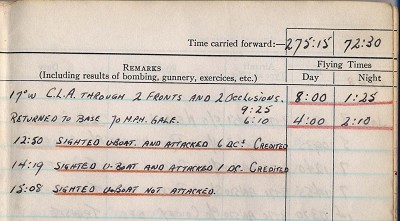 Time carried forward:— 275:15 72:30
REMARKS Flying Times
(Including results of bombing, gunnery, exercices, etc.) Day Night
17°W C.L.A. THROUGH 2 FRONTS AND 2 OCCLUSIONS. 8:00 1:25
9:25
RETURNED TO BASE 70 M.P.H. GALE. 6:10 4:00 2:10
12:50 SIGHTED U-BOAT. AND ATTACKED 6 DCs CREDITED
14:19 SIGHTED U-BOAT AND ATTACKED 1 DC. CREDITED
15:08 SIGHTED U-BOAT NOT ATTACKED.